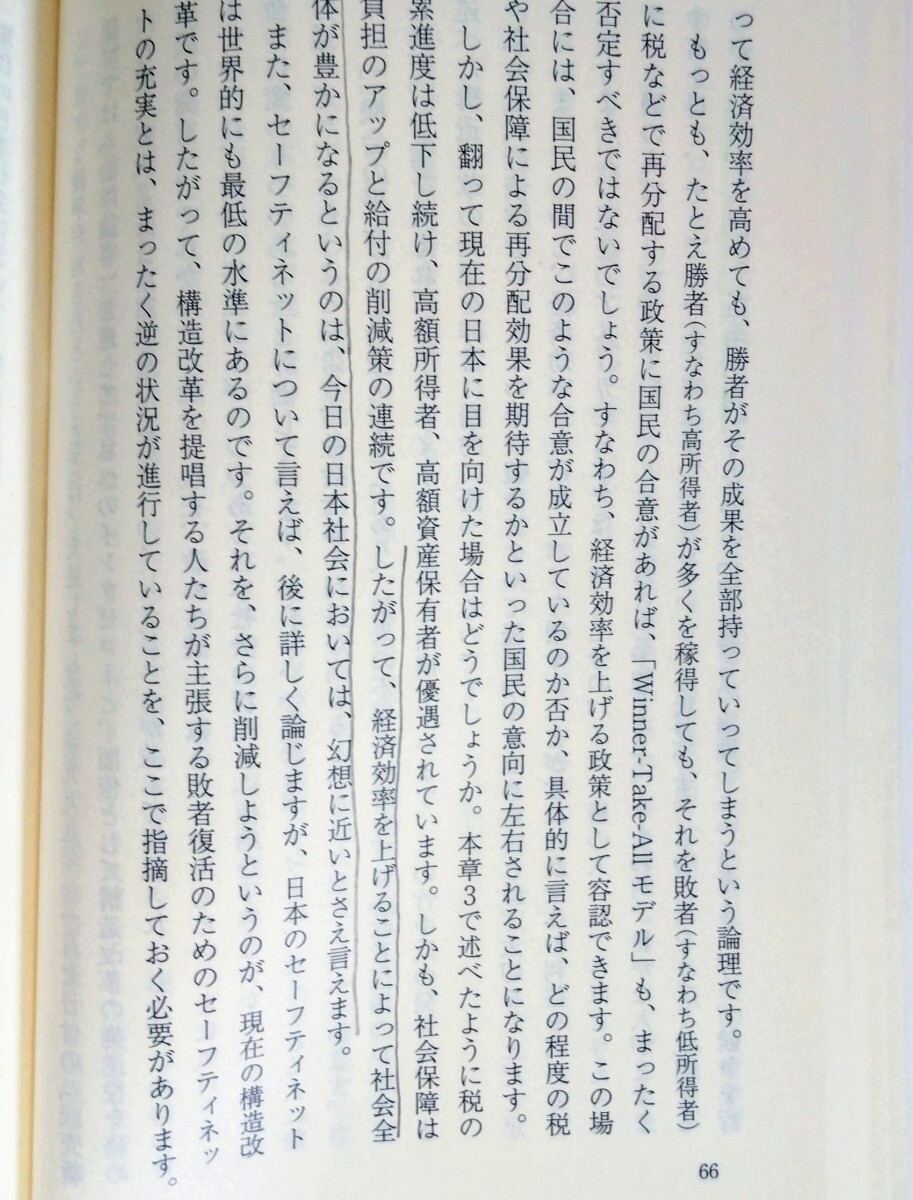 って経済効率を高めても、勝者がその成果を全部持っていってしまうという論理です。
もっとも、たとえ勝者(すなわち高所得者)が多くを稼得しても、それを敗者(すなわち低所得者)
に税などで再分配する政策に国民の合意があれば、「Winner-Take-All モデル」も、まったく
否定すべきではないでしょう。すなわち、経済効率を上げる政策として容認できます。この場
合には、国民の間でこのような合意が成立しているのか否か、具体的に言えば、どの程度の税
や社会保障による再分配効果を期待するかといった国民の意向に左右されることになります。
しかし、翻って現在の日本に目を向けた場合はどうでしょうか。本章3で述べたように税の
累進度は低下し続け、高額所得者、高額資産保有者が優遇されています。しかも、社会保障は
負担のアップと給付の削減策の連続です。したがって、経済効率を上げることによって社会全
体が豊かになるというのは、今日の日本社会においては、幻想に近いとさえ言えます。
また、セーフティネットについて言えば、後に詳しく論じますが、日本のセーフティネット
は世界的にも最低の水準にあるのです。それを、さらに削減しようというのが、現在の構造改
革です。したがって、構造改革を提唱する人たちが主張する敗者復活のためのセーフティネッ
トの充実とは、まったく逆の状況が進行していることを、ここで指摘しておく必要があります。
66